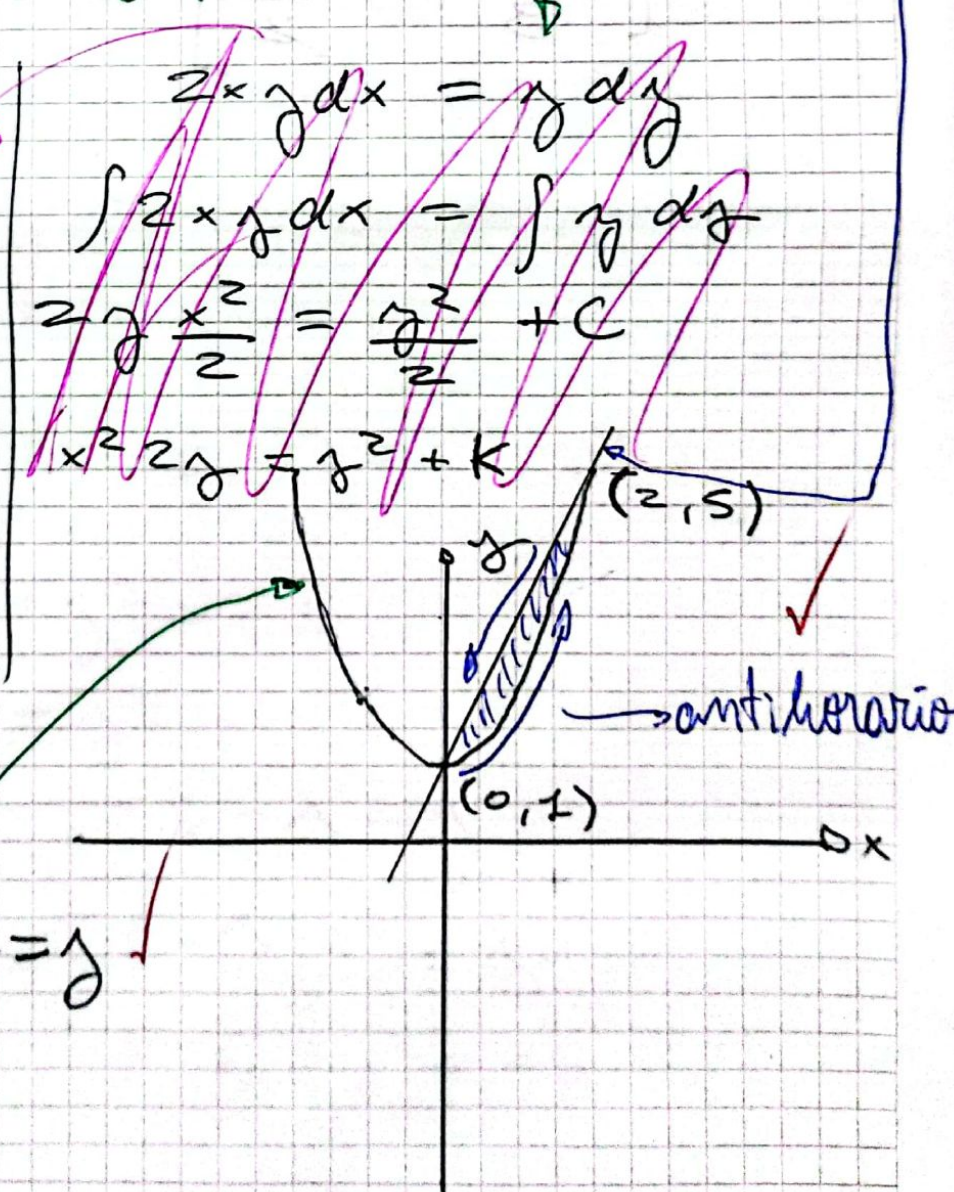 2x y dx = y dy
∫ 2x y dx = ∫ y dy
2y x²/2 = y²/2 + C
x² 2y = y² + K
(2,5)
y
antihorario
(0,1)
x
= y